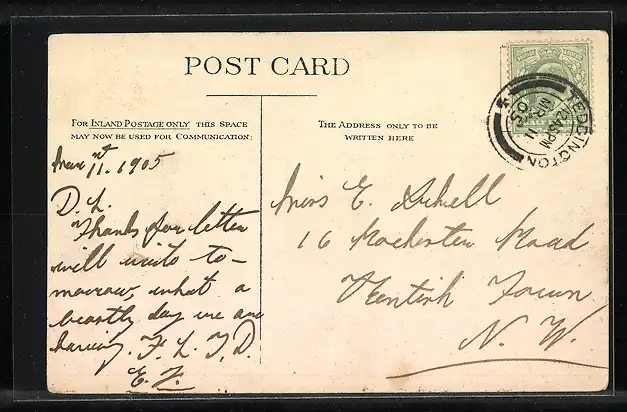 POST CARD
FOR INLAND POSTAGE ONLY THIS SPACE
MAY NOW BE USED FOR COMMUNICATION.
THE ADDRESS ONLY TO BE
WRITTEN HERE
TEDDINGTON
12 45 PM
MR 11
05
11. 1905
D. L.
Thanks for letter
will write to-
morrow, what a
beastly day we are
having. F. L. T. D.
E. F.
Miss E.
16 Rochester Road
Kentish Town
N. W.